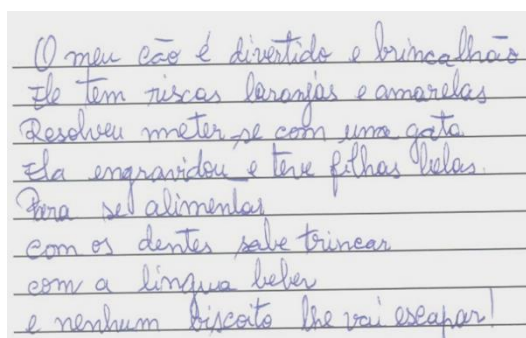 O meu cão é divertido e brincalhão
Ele tem riscas laranjas e amarelas
Resolveu meter-se com uma gata
Ela engravidou e teve filhas belas.
Para se alimentar
com os dentes sabe trincar
com a língua beber
e nenhum biscoito lhe vai escapar!